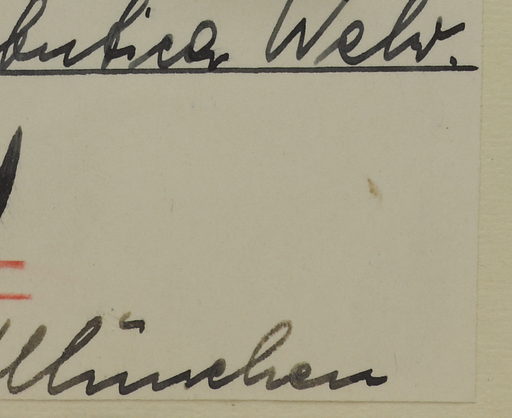 butica Welw.
München